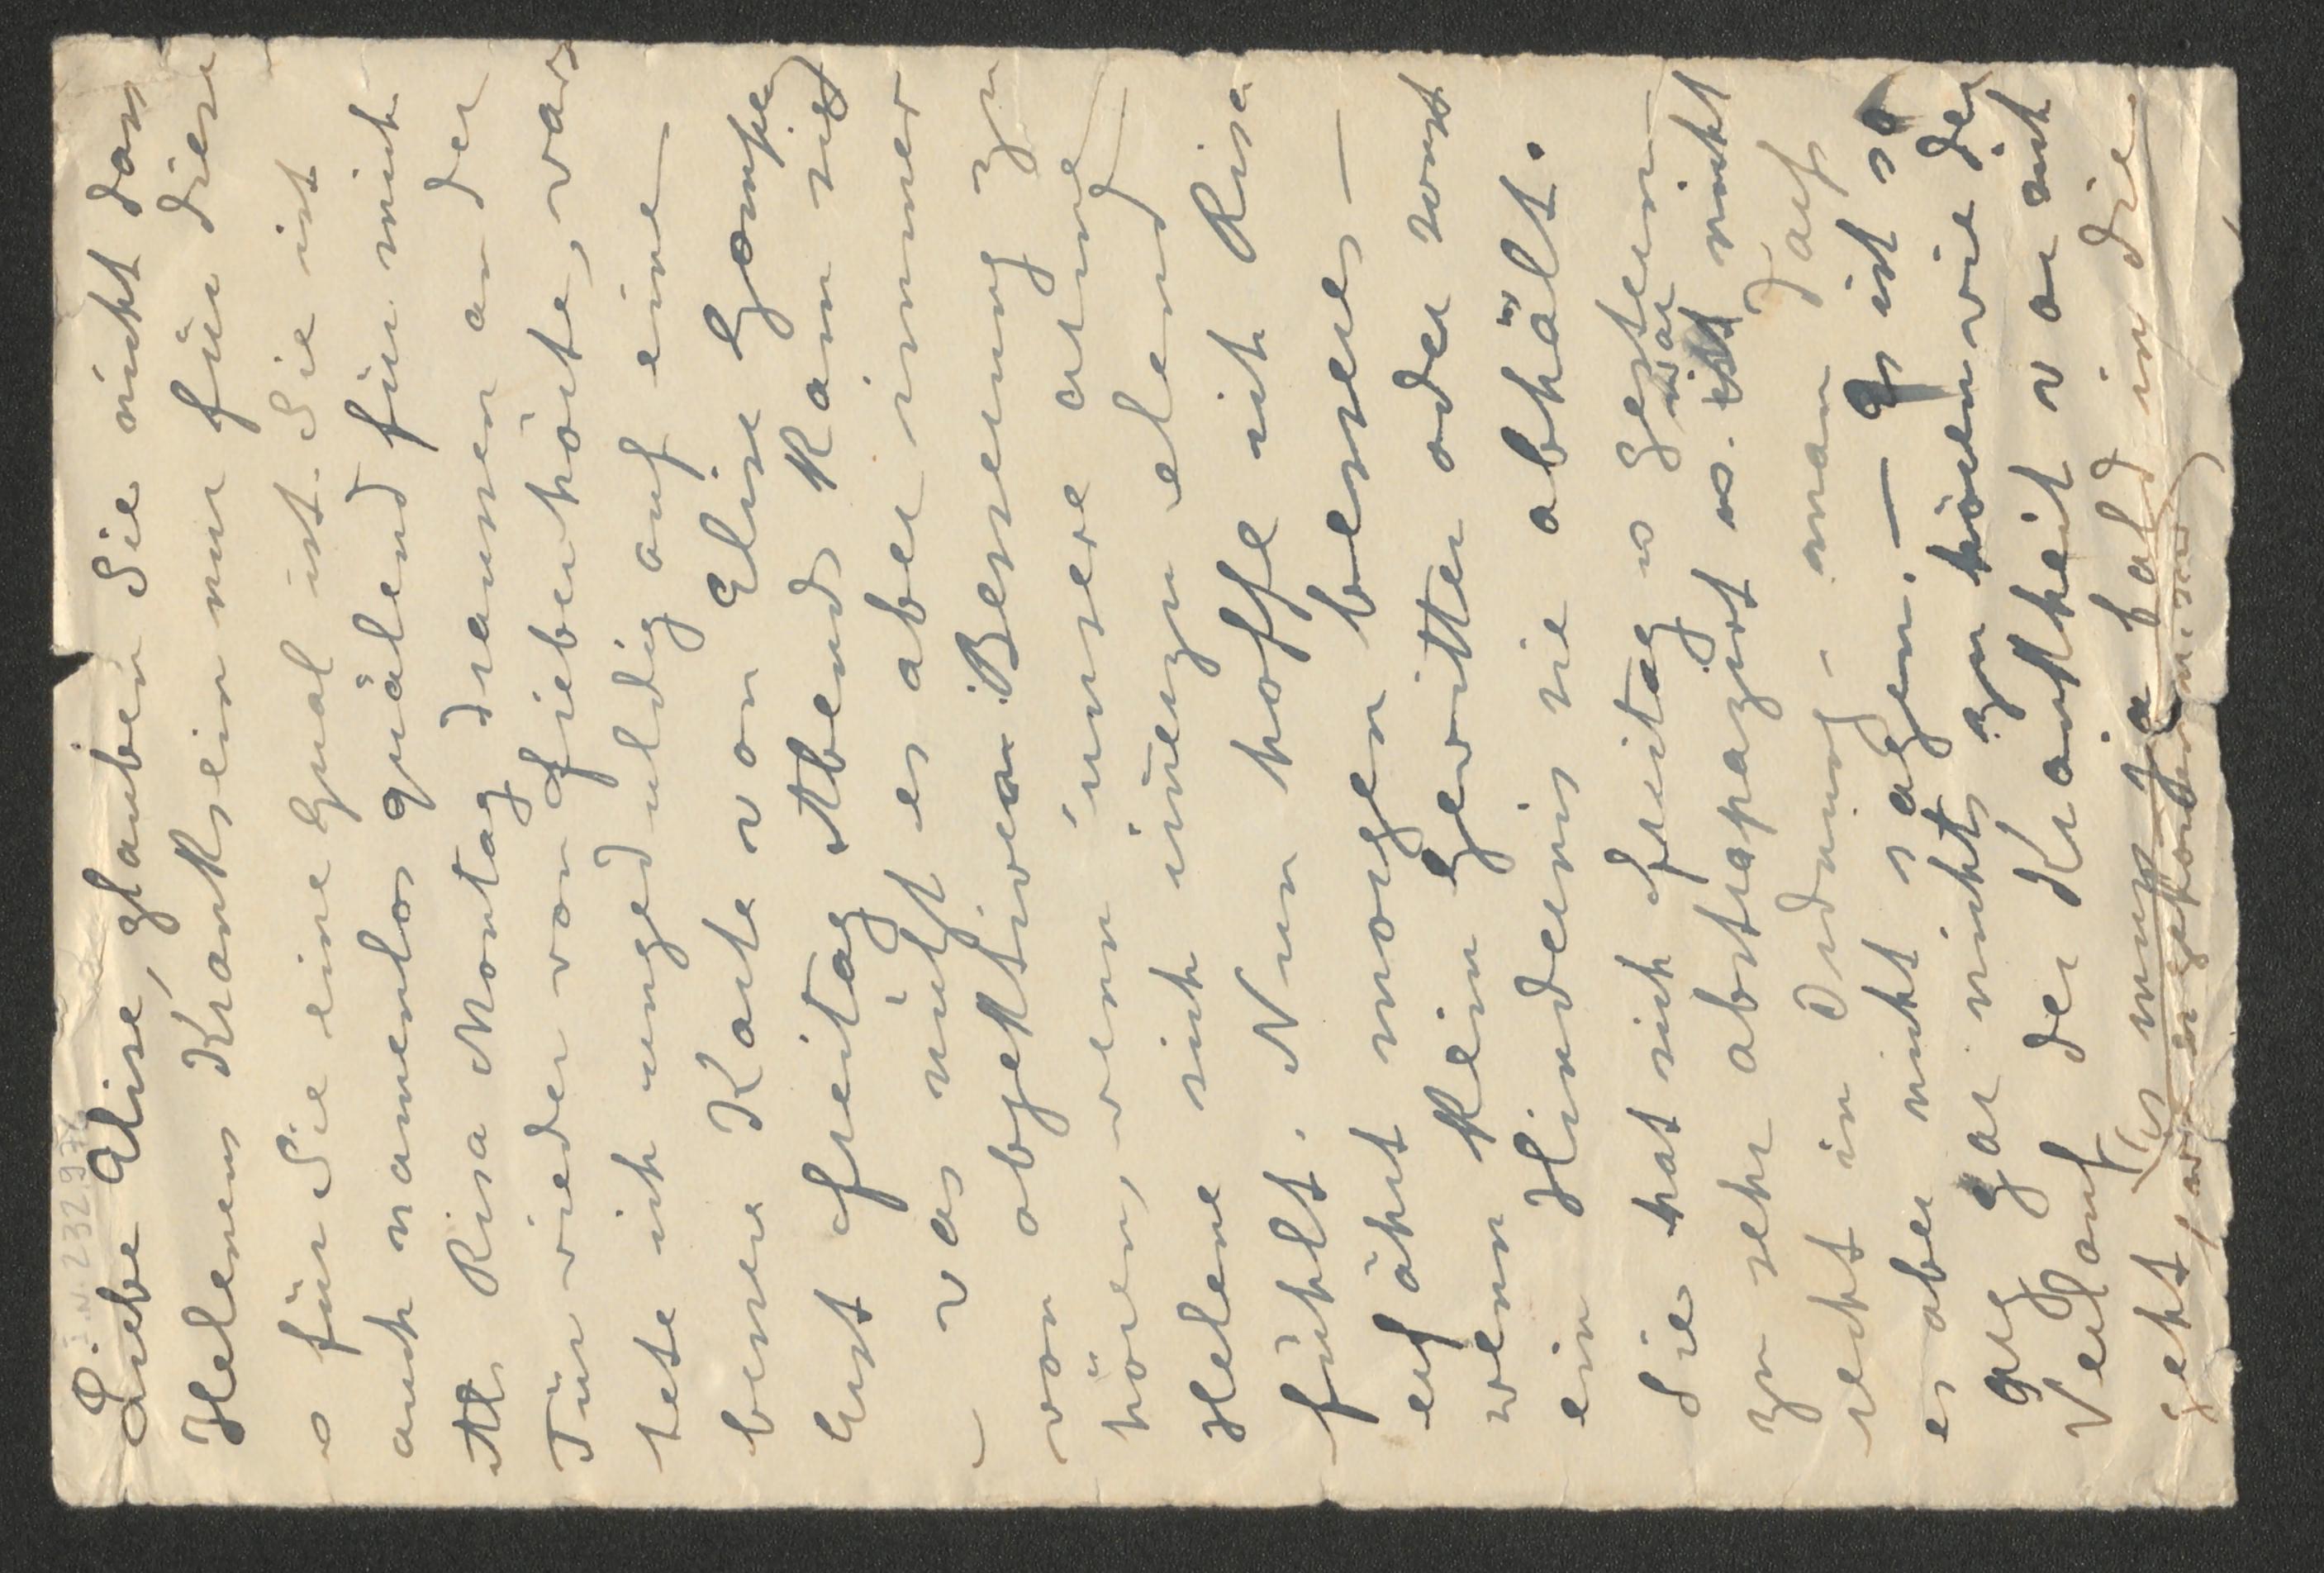 I.N. 232976
Liebe Elise, glauben Sie nicht dass
Helenens Kranksein nur für diese
u für Sie eine Qual ist. Sie ist
auch namenlos quälend für mich
Als Risa Montag draussen an der
Tür wieder von Fieber hörte, war
tete ich ungeduldig auf eine
bessere Karte von Elise Gomp
Erst Freitag Abends kam sie
– was nützt es aber immer
von objektiver Besserung zu
hören, wenn unsere arme
Helene sich elend
fühlt. Nun hoffe ich Risa
erfährt morgen besseres –
wenn kein Gewitter oder sonst
ein Hindernis sie abhält.
Sie hat sich Freitag u gestern
zu sehr abstrapazirt u. war nicht
recht in Ordnung – man darf
es aber nicht sagen. – Es ist so
arg gar nichts zu hören wie der
Verlauf der Krankheit vor sich
geht, (es muss ja bald in die